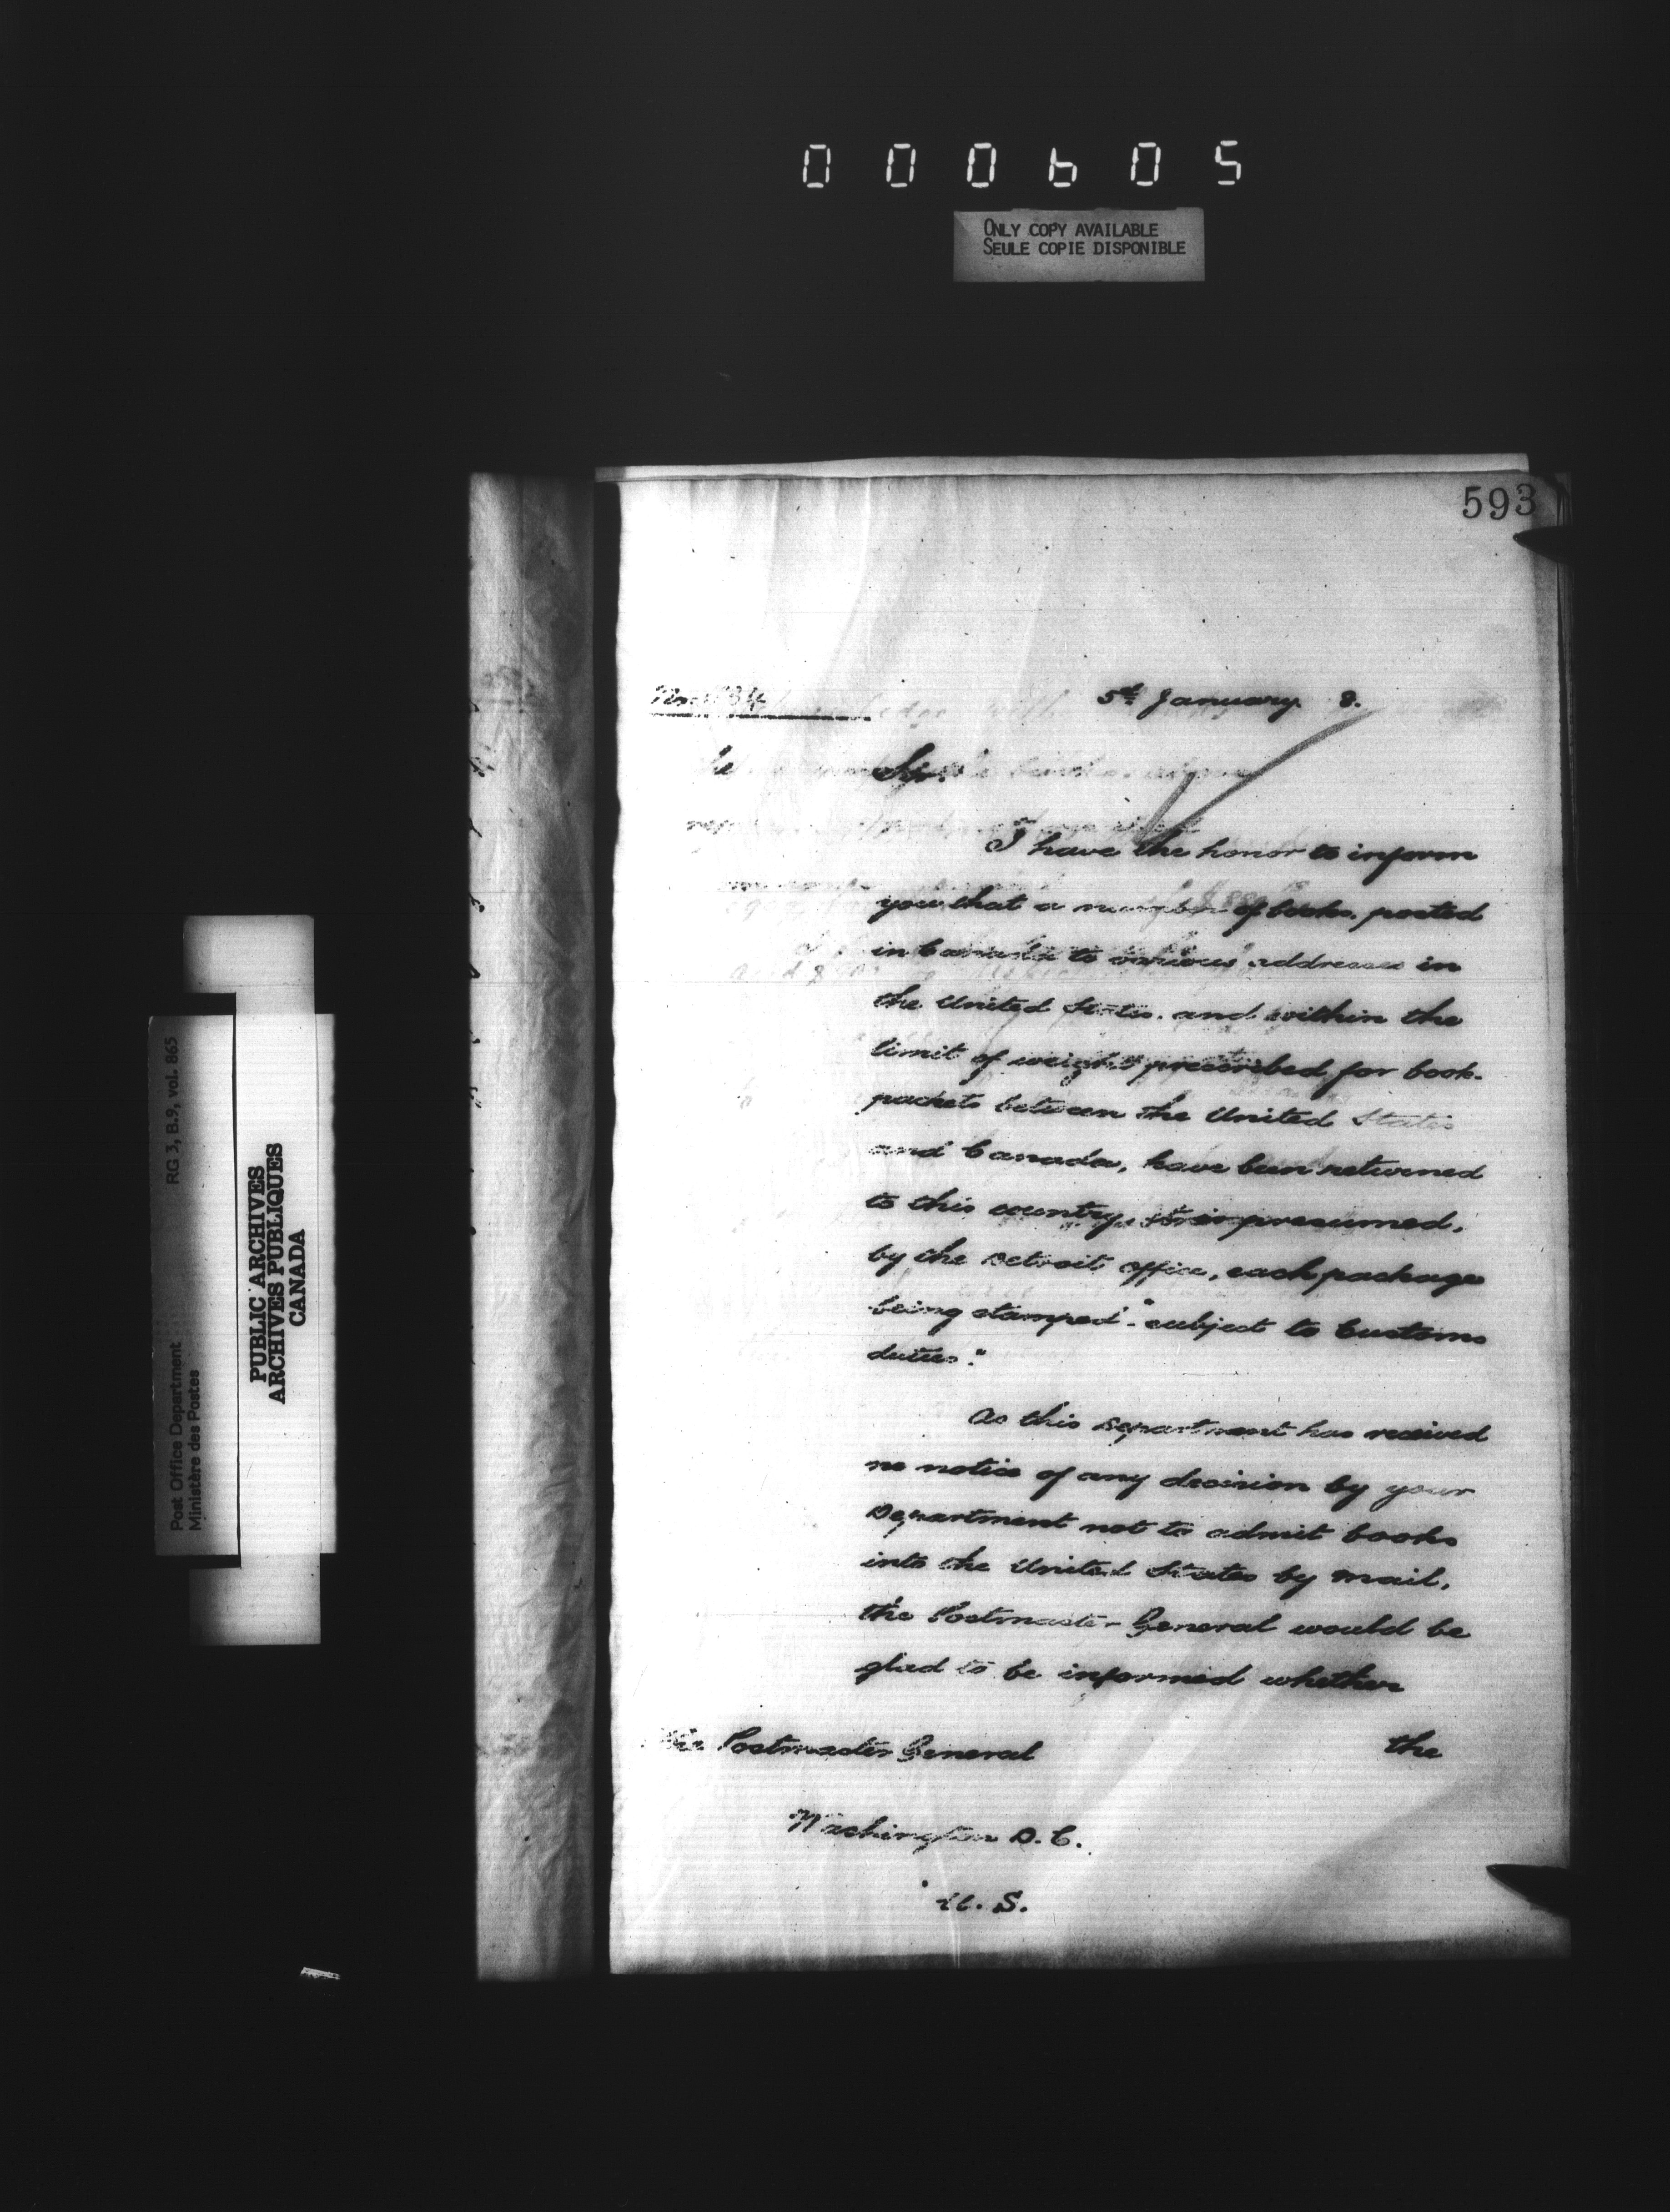 000605
ONLY COPY AVAILABLE
SEULE COPIE DISPONIBLE
593
5th January 8.
Sir.
I have the honor to inform
you that a number of books, posted
in Canada to various addresses in
the United States. and within the
limit of weight prescribed for book-
packets between the United States
and Canada, have been returned
to this country, it is presumed,
by the Detroit office, each package
being stamped "subject to Customs
duties."
As this Department has received
no notice of any decision by your
Department not to admit books
into the United States by mail,
the Postmaster General would be
glad to be informed whether
the
The Postmaster General
Washington D.C.
U.S.
Post Office Department RG 3, B.9, vol. 865
Ministère des Postes
PUBLIC ARCHIVES
ARCHIVES PUBLIQUES
CANADA